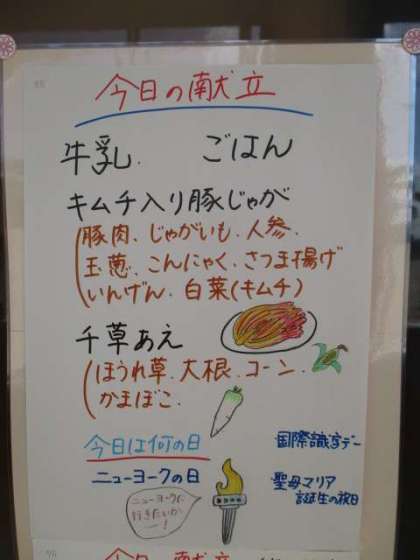 今日の献立
牛乳. ごはん
キムチ入り豚じゃが
豚肉.じゃがいも.人参.
玉葱.こんにゃく.さつま揚げ
いんげん.白菜(キムチ)
千草あえ
ほうれ草.大根.コーン.
かまぼこ.
今日は何の日
国際識字デー
ニューヨークの日
聖母マリア
誕生の祝日
ニューヨークに
行きたいかー!
今日の献立